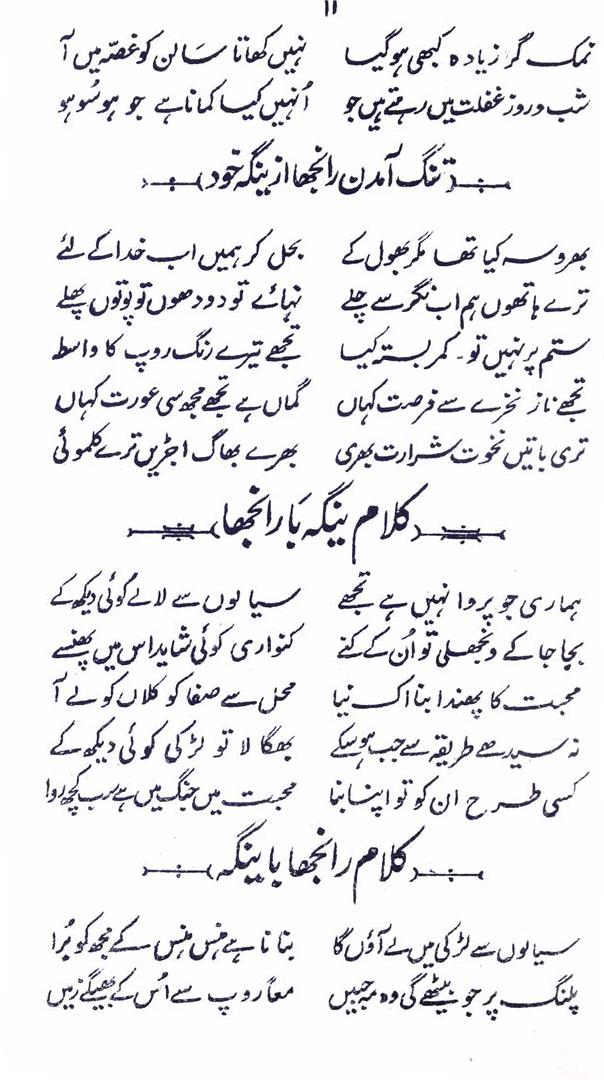 ۱۱
نمک گر زیادہ کبھی ہو گیا نہیں کھاتا سالن کو غصّہ میں آ
شب و روز غفلت میں رہتے ہیں جو اُنہیں کیا کمانا ہے جو ہو سُو ہو
تنگ آمدن رانجھا از ینگہ خود
بھروسہ کیا تھا مگر بھول کے بحل کر ہمیں اب خدا کے لئے
ترے ہاتھوں ہم اب نگر سے چلے نہائے تو دودھوں تو پوتوں پھلے
ستم پر نہیں تو۔ کمر بستہ کیا تجھے تیرے رنگ روپ کا واسطہ
تجھے ناز نخرے سے فرصت کہاں گماں ہے تجھے مجھ سی عورت کہاں
تری باتیں نخوت شرارت بھری بھرے بھاگ اجڑیں ترے کلموئی
کلام ینگہ با رانجھا
ہماری جو پروا نہیں ہے تجھے سیالوں سے لالے کوئی دیکھ کے
بجا جا کے ونجھلی تو اُن کے کنے کنواری کوئی شاید اس میں پھنسے
محبت کا پھندا بنا اک نیا محل سے صفا کو کلاں کو لے آ
نہ سیدھے طریقہ سے جب ہو سکے بھگا لا تو لڑکی کوئی دیکھ کے
کسی طرح ان کو تو اپنا بنا محبت میں جنگ میں ہے سب کچھ روا
کلام رانجھا با ینگہ
سیالوں سے لڑکی میں لے آؤں گا بناتا ہے ہنس ہنس کے مجھ کو بُرا
پلنگ پر جو بیٹھے گی وہ مہ جبیں معاً روپ سے اُس کے بھیگے زمیں